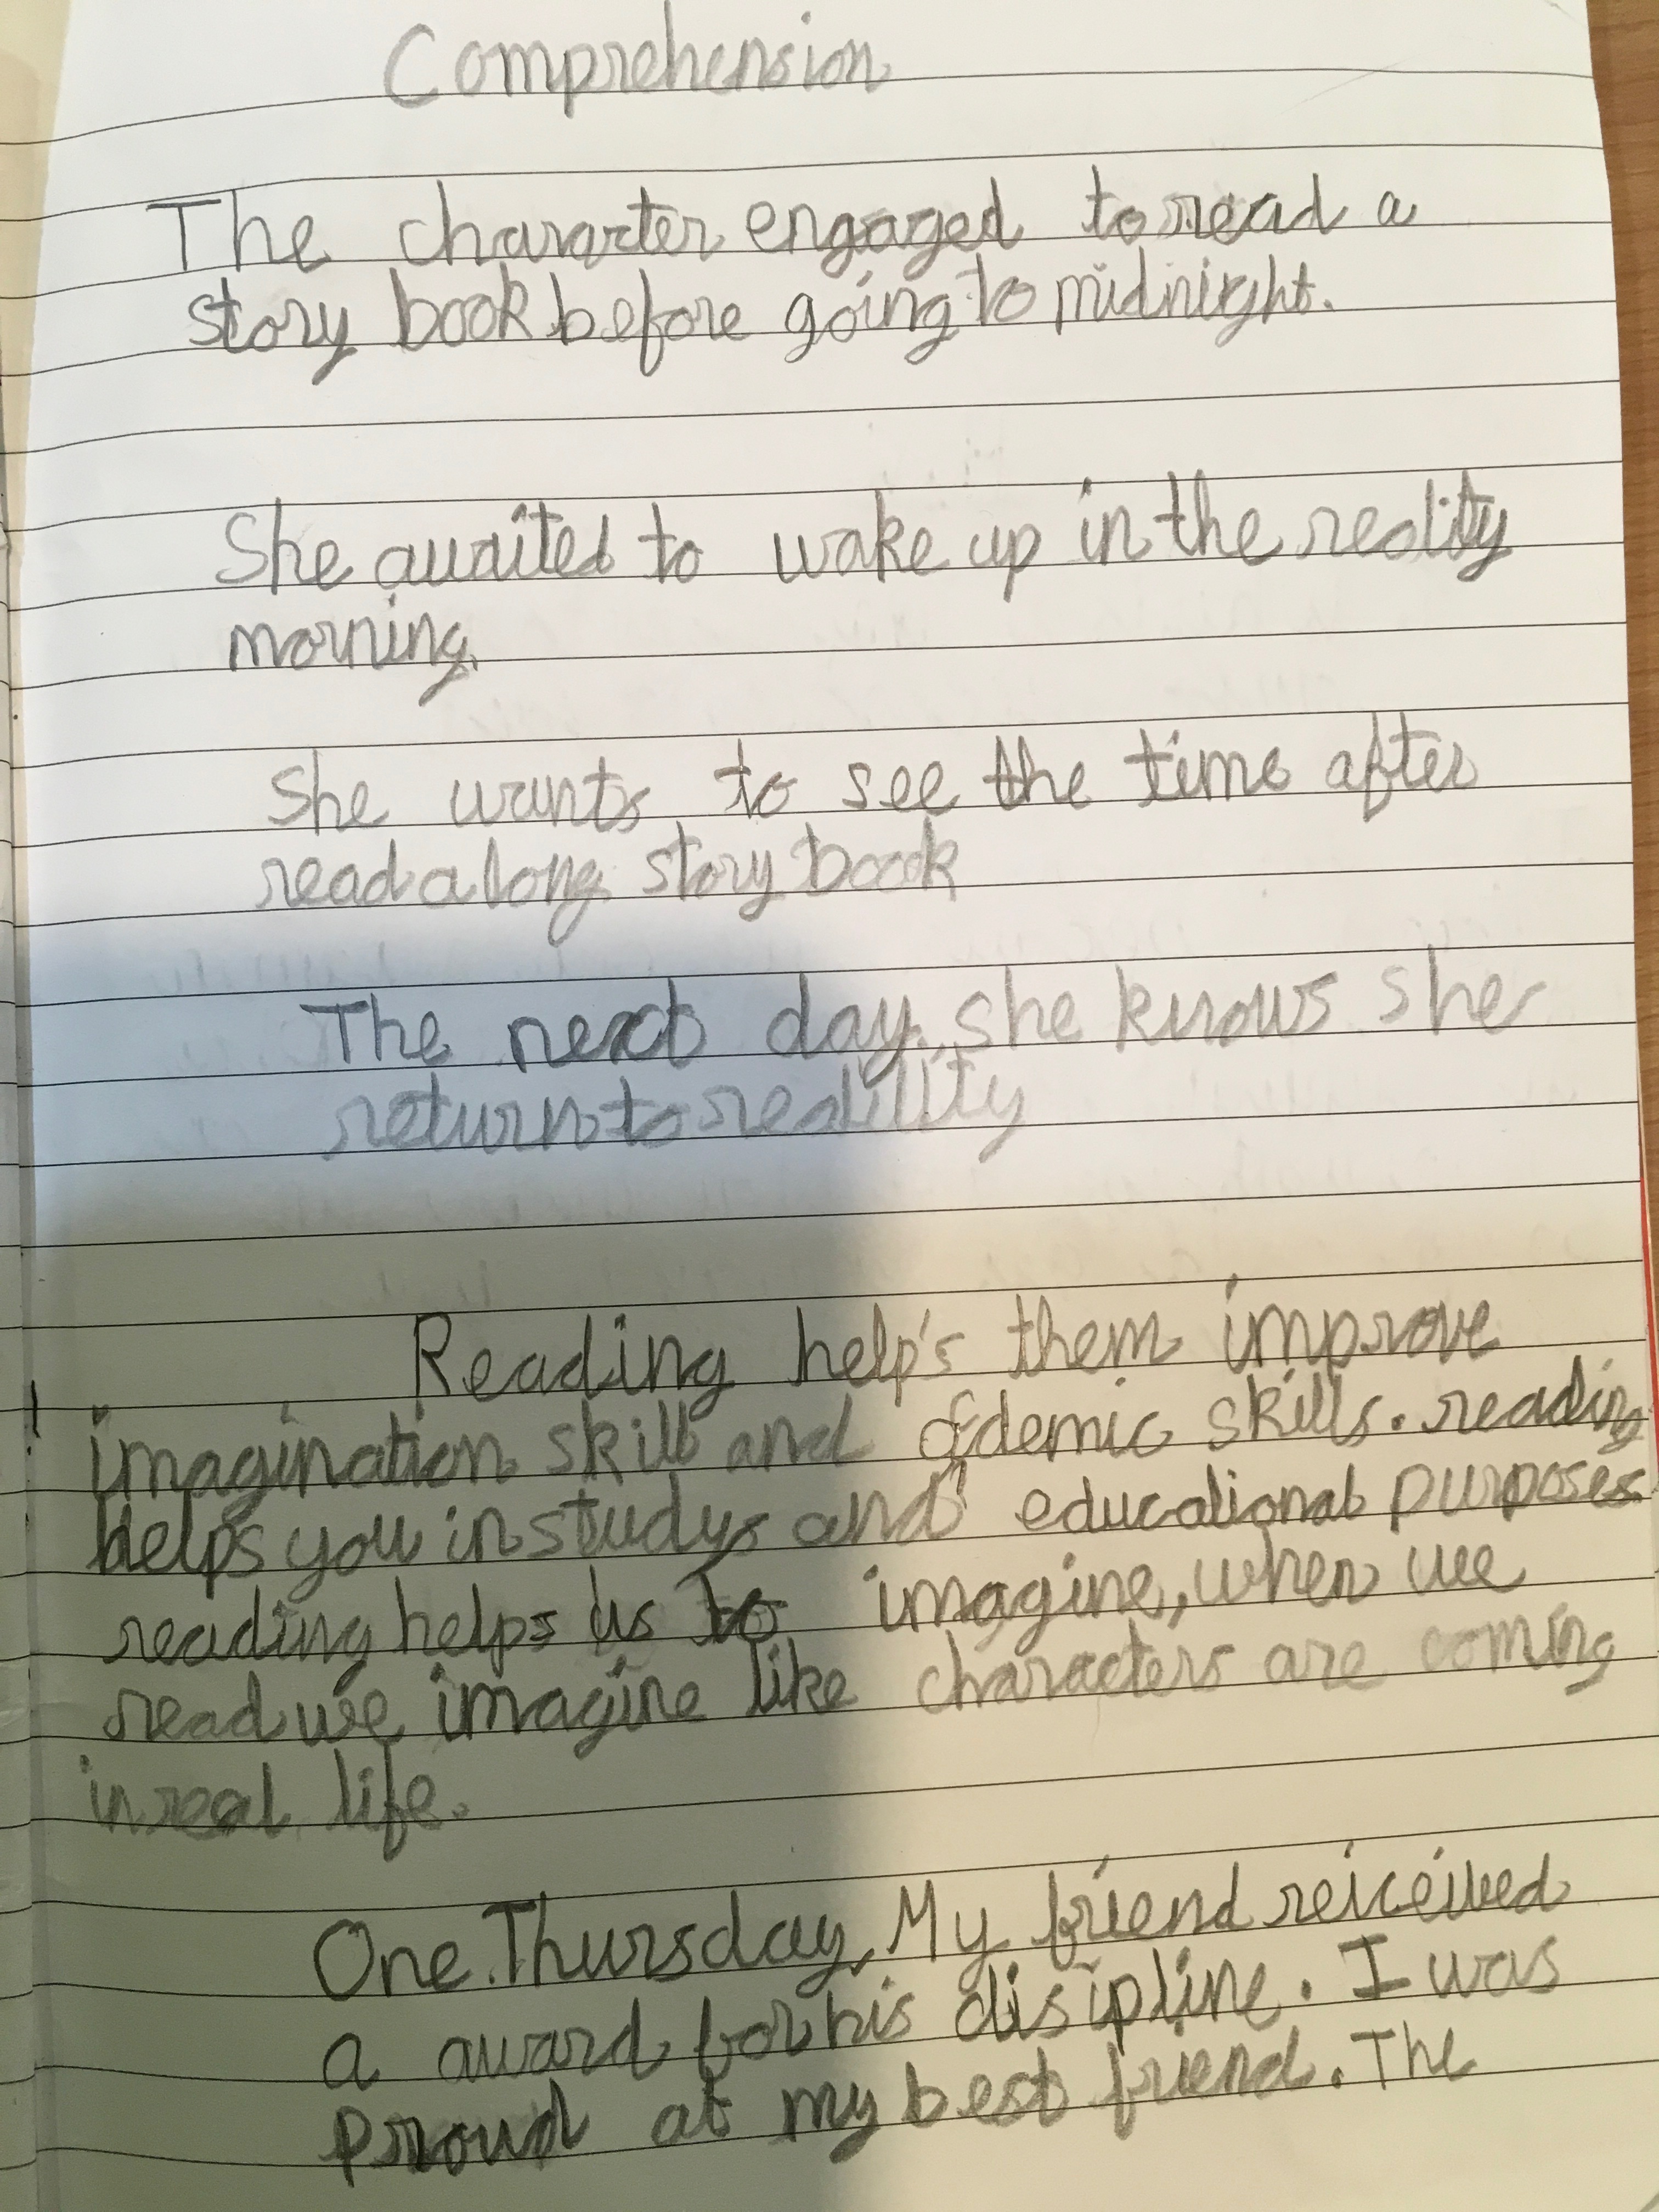 Comprehension
The chararcter engaged to read a
story book before going to midnight.
She awaited to wake up in the reality
morning.
She wants to see the time after
read a long story book
The next day, she knows she
return to realility
Reading help's them improve
imagination skill and demic skills. reading
helps you in studys and educational purposes.
reading helps us to imagine, when we
read we imagine like characters are coming
in real life.
One Thursday, My friend reiceived
a award for his disipline. I was
proud at my best friend. The